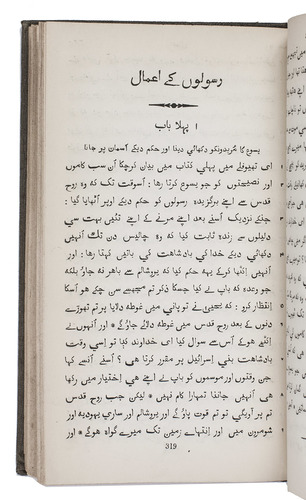 رسولوں کے اعمال
۱ پہلا باب
یسوع کا مریدونکو دکھائی دینا اور حکم دیکے آسمان پر جانا
ای تھیوفلے میں پہلی کتاب میں بیان کرچکا اُن سب کاموں
اور نصیحتوں کو جو یسوع کرتا رہا : اُسوقت تک کہ وہ روح
قدس سے اپنے برگزیدہ رسولوں کو حکم دیکے اوپر اُٹھایا گیا :
جنکے نزدیک اُسنے بعد اپنے مرنے کے اپنے تئیں بہت سی
دلیلوں سے زندہ ثابت کیا کہ وہ چالیس دن تک اُنہیں
دکھائی دیکے خدا کی بادشاہت کی باتیں کہتا رہا : اور
اُنہیں اِکٹھا کرکے یہہ حکم کیا کہ یروشالم سے باہر نہ جاؤ بلکہ
جو وعدہ کہ باپ نے کیا جسکا ذکر تم مجھسے سن چکے ہو اُسکا
اِنتظار کرو : کہ یحییٰ نے تو پانی میں غوطہ دلایا پر تم تھوڑے
دنوں کے بعد روح قدس میں غوطہ دلائے جاؤگے * اور اُنہوں نے
اِکٹھے ہوکے اُس سے سوال کیا ای خداوند کیا تو اِسی وقت
بادشاہت بنی اِسرائیل پر مقرر کرتا ہی ؟ اُسنے اُنسے کہا
جن وقتوں اور موسموں کو باپ نے اپنے ہی اِختیار میں رکھا
ہی اُنہیں جاننا تمہارا کام نہیں * لیکن جب روح قدس
تم پر آویگی تو تم قوت پاؤگے اور یروشالم اور ساری یہودیہ اور
شومرون میں اور اِنتہاے زمین تک میرے گواہ ہوگے *
319